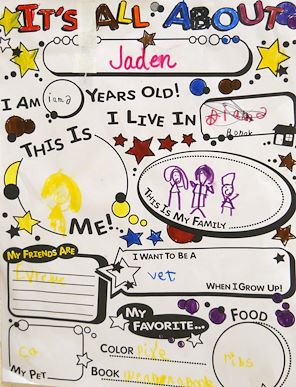 IT'S ALL ABOUT
Jaden
I AM
YEARS OLD!
I LIVE IN
THIS IS
ME!
THIS IS MY FAMILY
MY FRIENDS ARE
I WANT TO BE A
vet
WHEN I GROW UP!
MY FAVORITE...
FOOD
COLOR
BOOK
ribs
MY PET